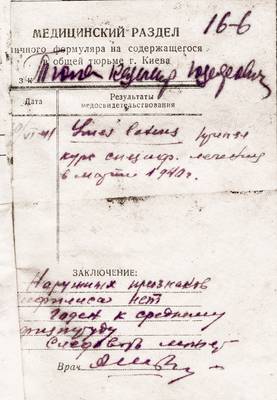 16-6
МЕДИЦИНСКИЙ РАЗДЕЛ
ичного формуляра на содержащегося
в общей тюрьме г. Киева
з к Казимир
Дата Результаты
медосвидетельствования
VI-41
курс специф. лечения
в марте 1940 г.
ЗАКЛЮЧЕНИЕ:
Наружных признаков
сифилиса нет
Годен к среднему
физтруду
Следовать может
Врач